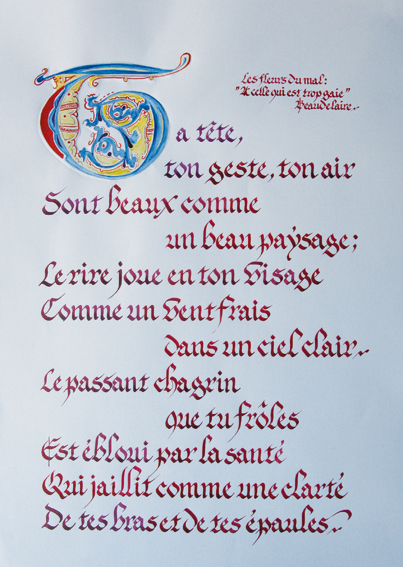 Les fleurs du mal:
"A celle qui est trop gaie"
Beaudelaire.
Ta tête,
ton geste, ton air
Sont beaux comme
un beau paysage;
Le rire joue en ton visage
Comme un vent frais
dans un ciel clair.
Le passant chagrin
que tu frôles
Est ébloui par la santé
Qui jaillit comme une clarté
De tes bras et de tes épaules.